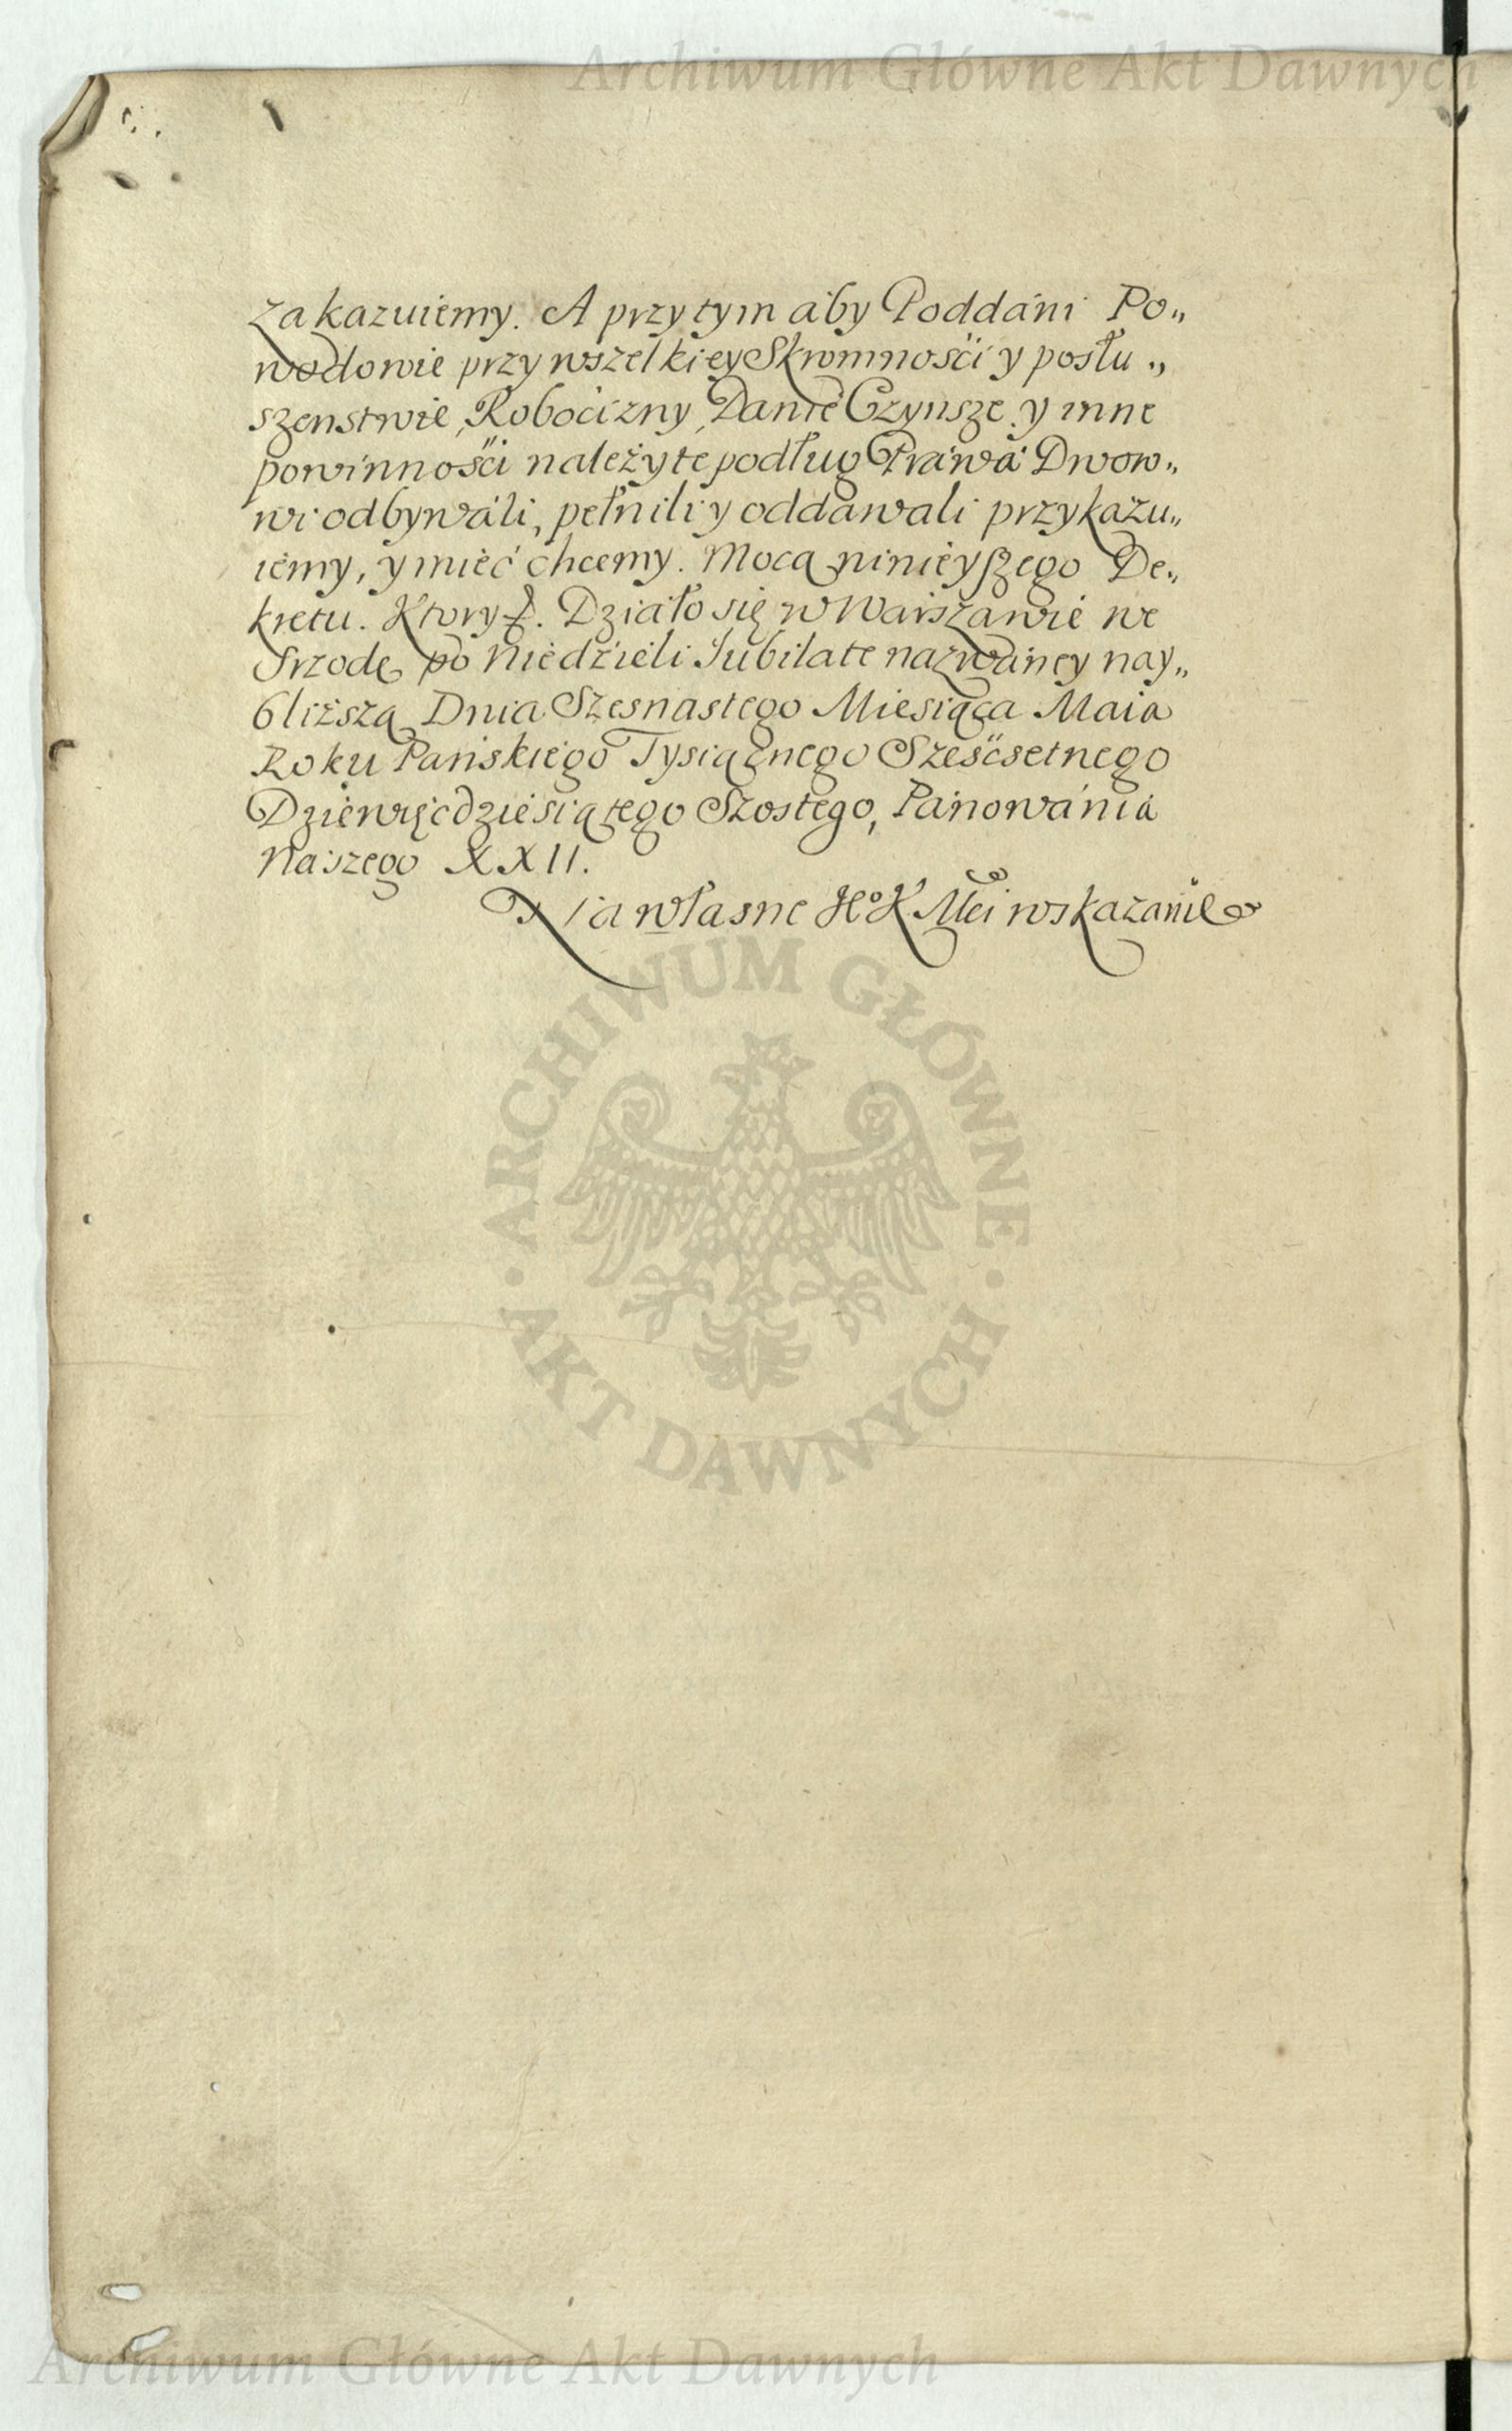 Archiwum Główne Akt Dawnych
zakazuiemy. A przytym aby Poddáni Po„
wodowie przy wszelkiey Skromnośći y posłu„
szenstwie, Robocizny, Danie Czynsze y inne
powinnośći należyte podług Práwá Dworo„
wi odbywáli, pełnili y oddáwali przykazu„
iemy, y mieć chcemy. Mocą ninieyszego De„
kretu. Ktory. Działo się w Warszawie we
Srzodę po Niedzieli Jubilate nazwáney nay„
bliższą Dnia Szesnastego Miesiąca Maia
Roku Pańskiego Tysiącznego Sześćsetnego
Dziewięćdziesiątego Szostego, Pánowánia
Naszego XXII.
Na własne Kr Mci wskazanie
ARCHIWUM GŁÓWNE
AKT DAWNYCH
Archiwum Główne Akt Dawnych